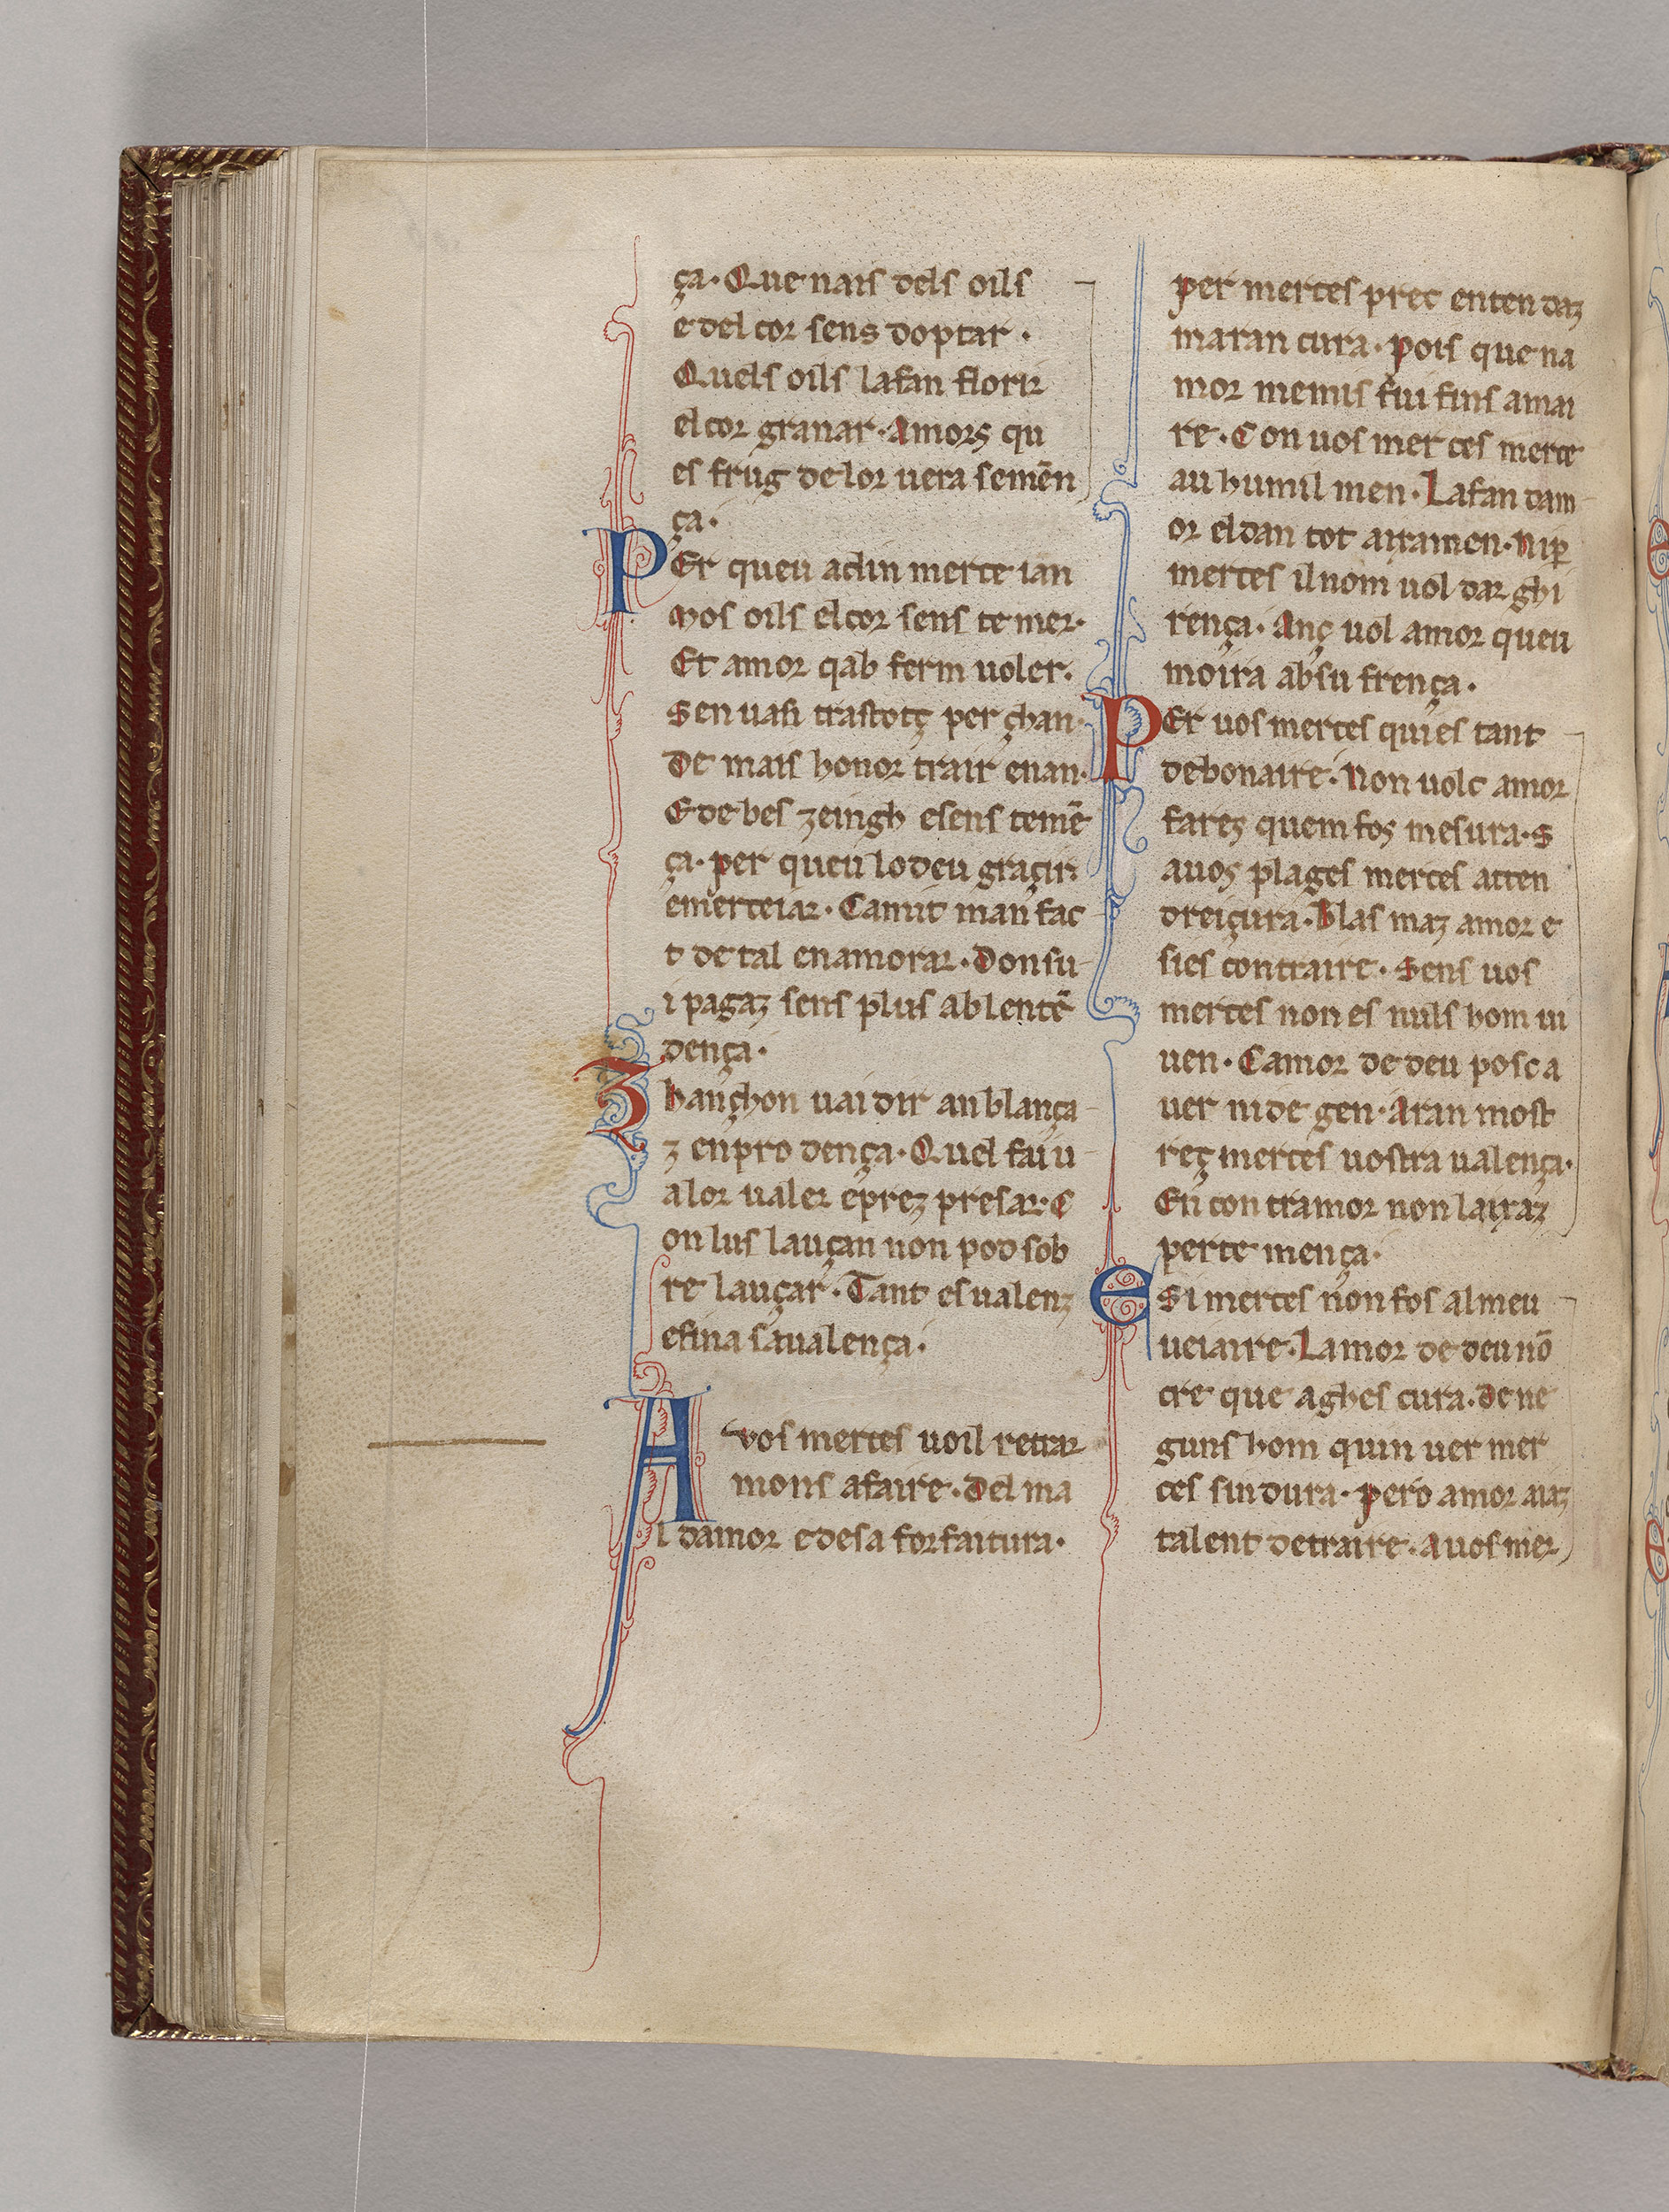 ça. Que nais dels oils
e del cor sens doptar.
Quels oils lafan florir
el cor granar. Amors qu
es frug de lor uera semēn
ça.
PEr queu aclin merceian
Mos oils el cor sens temer.
Et amor qab ferm uoler.
Sen uasi trastotç per çhan
De mais honor trair enan.
E de bes zeingh e sens temē
ça. per queu lo deu graçir
e merceiar. Camit man fac
t de tal enamorar. Don su
i pagaz sens plus ab lentē
dença.
Zhançhon uai dir an blança
z en pro dença. Quel fai u
alor ualer e prez presar. C
on lus lauçan non pod sob
re lauçar. Tant es ualenz
e fina sa ualença.
A vos merces uoil retrar
mons afaire. Del ma
l damor e de sa forfaitura.
per merces prec entendaz
maran cura. pois que na
mor memis fui fins amai
re. Con uos merces merce
au humil men. Lafan dam
or el dan tot airamen. Ni ꝑ
merces il nom uol dar ghi
rença. Anç uol amor queu
moira ab su frença.
PEr uos merces qui es tant
debonaire. Non uolc amor
farez quem fos mesura. S
a uos plages merces atten
dreiçura. Blas maz amor e
sies contraire. Sens uos
merces non es nuls hom ui
uen. Camor de deu posc a
uer ni de gen. Aran most
reç merces uostra ualença.
En contramor non lairaz
perte mença.
ESi merces non fos al meu
ueiaire. Lamor de deu nō
cre que aghes cura. De ne
guns hom quin uer mer
ces sin dura. pero amor aiaz
talent detraire. A uos mer